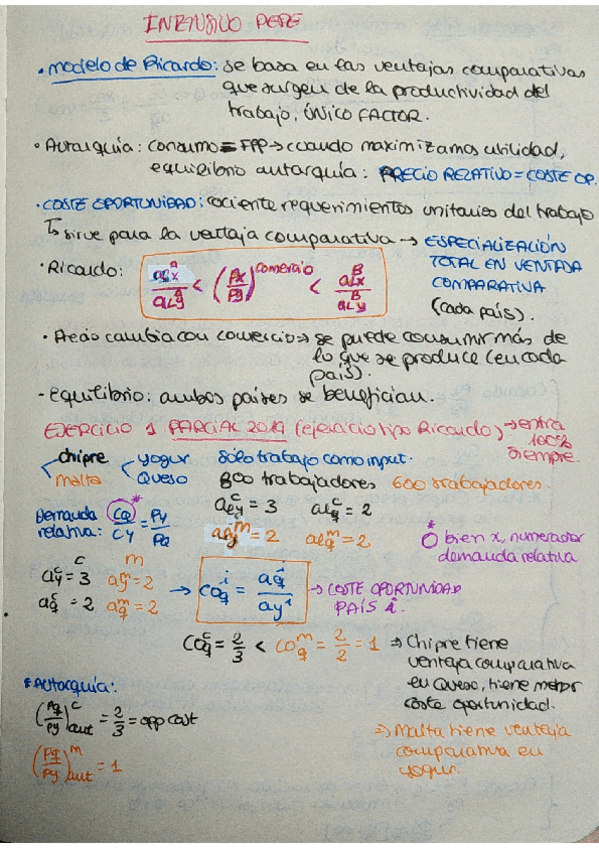 INTENSIVO PEPE
• modelo de Ricardo: se basa en las ventajas comparativas
que surgen de la productividad del
trabajo, ÚNICO FACTOR.
• Autarquía: consumo = FPP → cuando maximizamos utilidad,
equilibrio autarquía: PRECIO RELATIVO = COSTE OP.
• COSTE OPORTUNIDAD: cociente requerimientos unitarios del trabajo
↳ sirve para la ventaja comparativa → ESPECIALIZACIÓN
TOTAL EN VENTAJA
COMPARATIVA
(cada país).
• Ricardo: aLx^A / aLy^A < (Px/Py)^comercio < aLx^B / aLy^B
cambia con comercio → se puede consumir más de
lo que se produce (en cada
país).
- Equilibrio: ambos países se benefician.
EJERCICIO 1 PARCIAL 2019 (ejercicio tipo Ricardo) → entra
100%
siempre.
chipre yogur sólo trabajo como input.
malta queso 800 trabajadores 600 trabajadores.
aLy^c = 3 aLq^c = 2
Demanda relativa: CQ* / CY = PY / PQ
aLy^m = 2 aLq^m = 2
* bien x, numerador
demanda relativa
c m
ay^c = 3 ay^m = 2
aq^c = 2 aq^m = 2
→ COq^i = aq^i / ay^i → COSTE OPORTUNIDAD
PAÍS i.
COq^c = 2/3 < COq^m = 2/2 = 1 ⇒ Chipre tiene
ventaja comparativa
en queso, tiene menor
coste oportunidad.
* Autarquía:
(Pq/Py)^c aut = 2/3 = opp cost
⇒ Malta tiene ventaja
comparativa en
yogur.
(Pq/Py)^m aut = 1